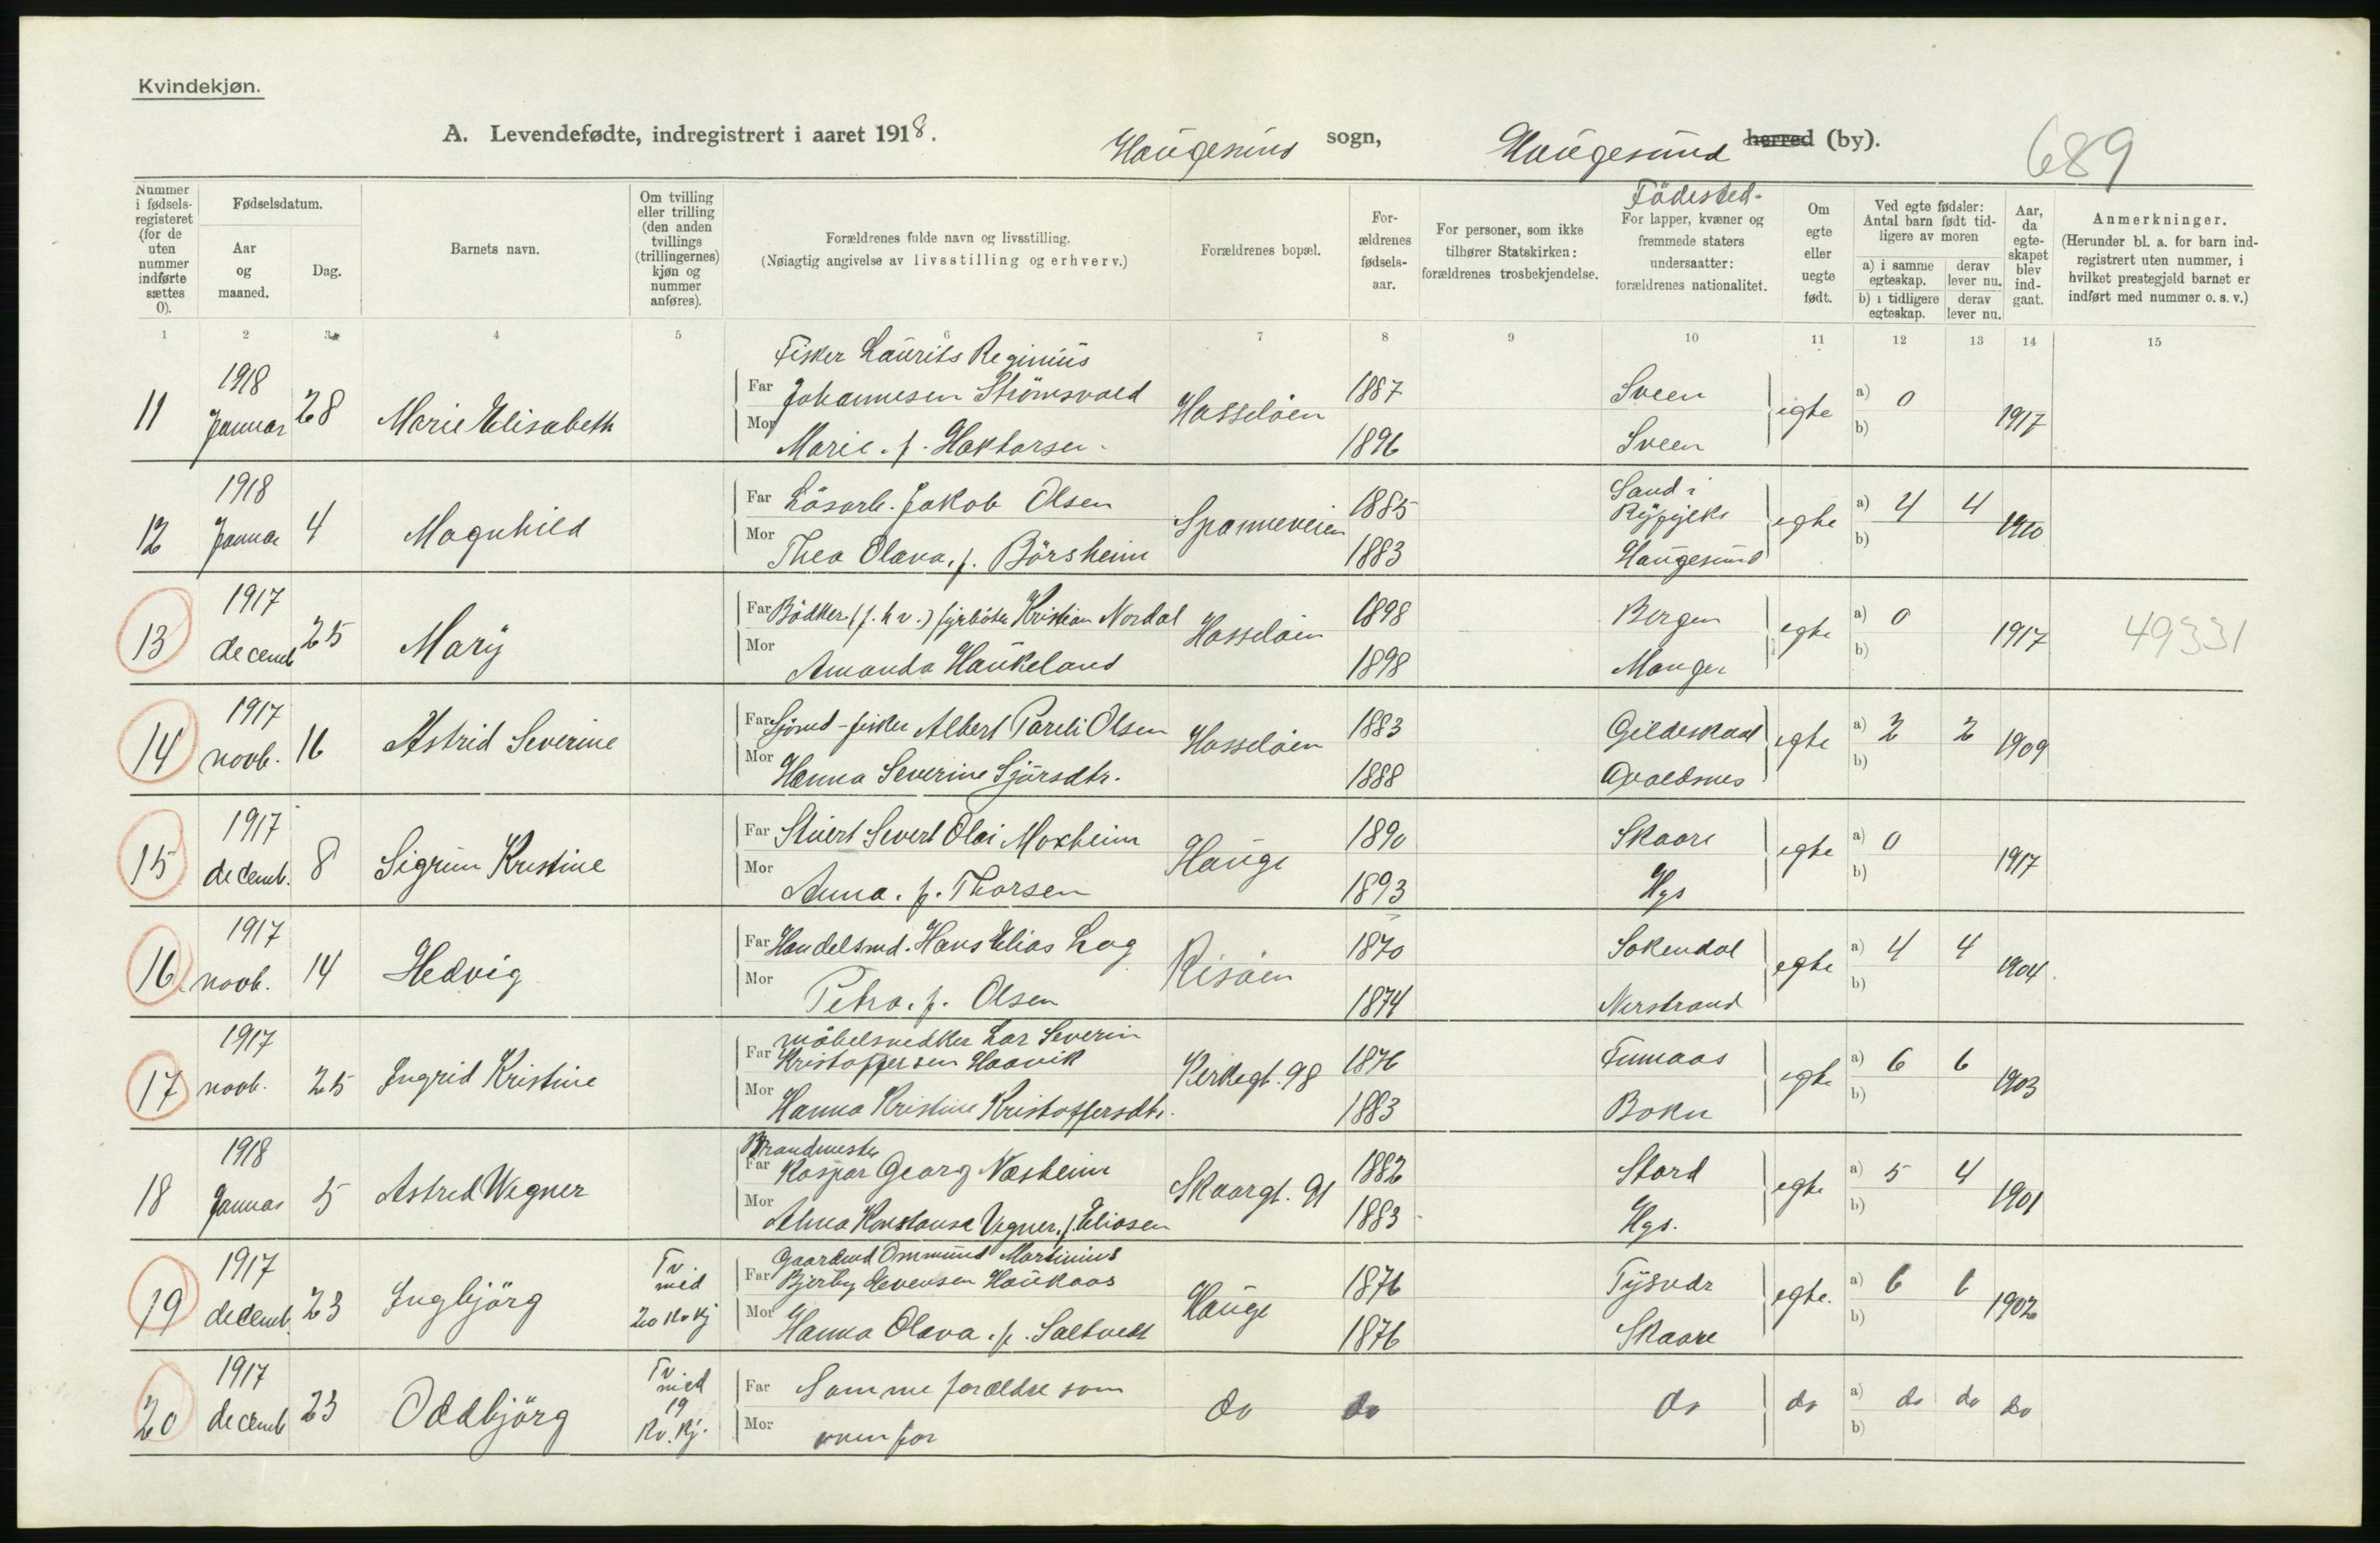 Kvindekjøn.
A. Levendefødte, indregistrert i aaret 1918.
Haugesund sogn, Haugesund herred (by).
689
Nummer i fødsels-registeret (for de uten nummer indførte sættes 0).
Fødselsdatum.
Aar og maaned.
Dag.
Barnets navn.
Om tvilling eller trilling (den anden tvillings (trillingernes) kjøn og nummer anføres).
Forældrenes fulde navn og livsstilling.
(Nøiagtig angivelse av livsstilling og erhverv.)
Forældrenes bopæl.
For-ældrenes fødsels-aar.
For personer, som ikke tilhører Statskirken: forældrenes trosbekjendelse.
Födested.
For lapper, kvæner og fremmede staters undersaatter: forældrenes nationalitet.
Om egte eller uegte født.
Ved egte fødsler: Antal barn født tid-ligere av moren
a) i samme egteskap.
derav lever nu.
b) i tidligere egteskap.
derav lever nu.
Aar, da egte-skapet blev ind-gaat.
Anmerkninger.
(Herunder bl. a. for barn ind-registrert uten nummer, i hvilket prestegjeld barnet er indført med nummer o. s. v.)
1 2 3 4 5 6 7 8 9 10 11 12 13 14 15
Fisker Laurits Reginius
1918 Far Johannesen Strömsvold 1887 Sveen
11 Januar 28 Marie Elisabeth Hasseløen egte a) 0 b) 1917
Mor Marie f. Haktorsen 1896 Sveen
1918 Far Lösarb. Jakob Olsen 1885 Sand i Ryfylke
12 Januar 4 Magnhild Spanneveien egte a) 4 4 b) 1910
Mor Thea Olava, f. Börsheim 1883 Haugesund
1917 Far Bödker (f. h v.) fyrböter Kristian Nordal 1898 Bergen
13 decemb 25 Mary Hasseløen egte a) 0 b) 1917 49331
Mor Amanda Haukeland 1898 Manger
1917 Far Sjömd-fisker Albert Pareli Olsen 1883 Gildeskaal
14 novb. 16 Astrid Severine Hasseløen egte a) 2 2 b) 1909
Mor Hanna Severine Sjursdtr. 1888 Avaldsnes
1917 Far Stuert Severt Olai Moxheim 1890 Skaare
15 decemb. 8 Sigrun Kristine Hauge egte a) 0 b) 1917
Mor Anna. f. Thorsen 1893 Hgs
1917 Far Handelsmd. Hans Elias Log 1870 Sokendal
16 novb. 14 Hedvig Risøen egte a) 4 4 b) 1904
Mor Petra. f. Olsen 1874 Nerstrand
möbelsnedker Lar Severin
1917 Far Kristoffersen Haavik 1876
17 novb. 25 Ingrid Kristine Kirkegt. 98 egte a) 6 6 b) 1903
Mor Hanna Kristine Kristoffersdtr. 1883 Bokn
Brandmester
1918 Far Kaspar Georg Næsheim 1882 Stord
18 Januar 5 Astrid Wegner Skaargt. 91 egte a) 5 4 b) 1901
Mor Alma Konstanse Vegner, f. Eliasen 1883 Hgs.
Gaardmd Ommund Martinius
1917 Tv. med 20 Kv. Kj Far Bjerby Sevensen Haukaas 1876 Tysvär
19 decemb. 23 Ingbjörg Hauge egte. a) 6 6 b) 1902
Mor Hanna Olava. f. Saltvedt 1876 Skaare
1917 Tv. med 19 Kv. Kj. Far Samme forældre som
20 decemb 23 Oddbjörg do do do do a) do do b) do
Mor ovenfor